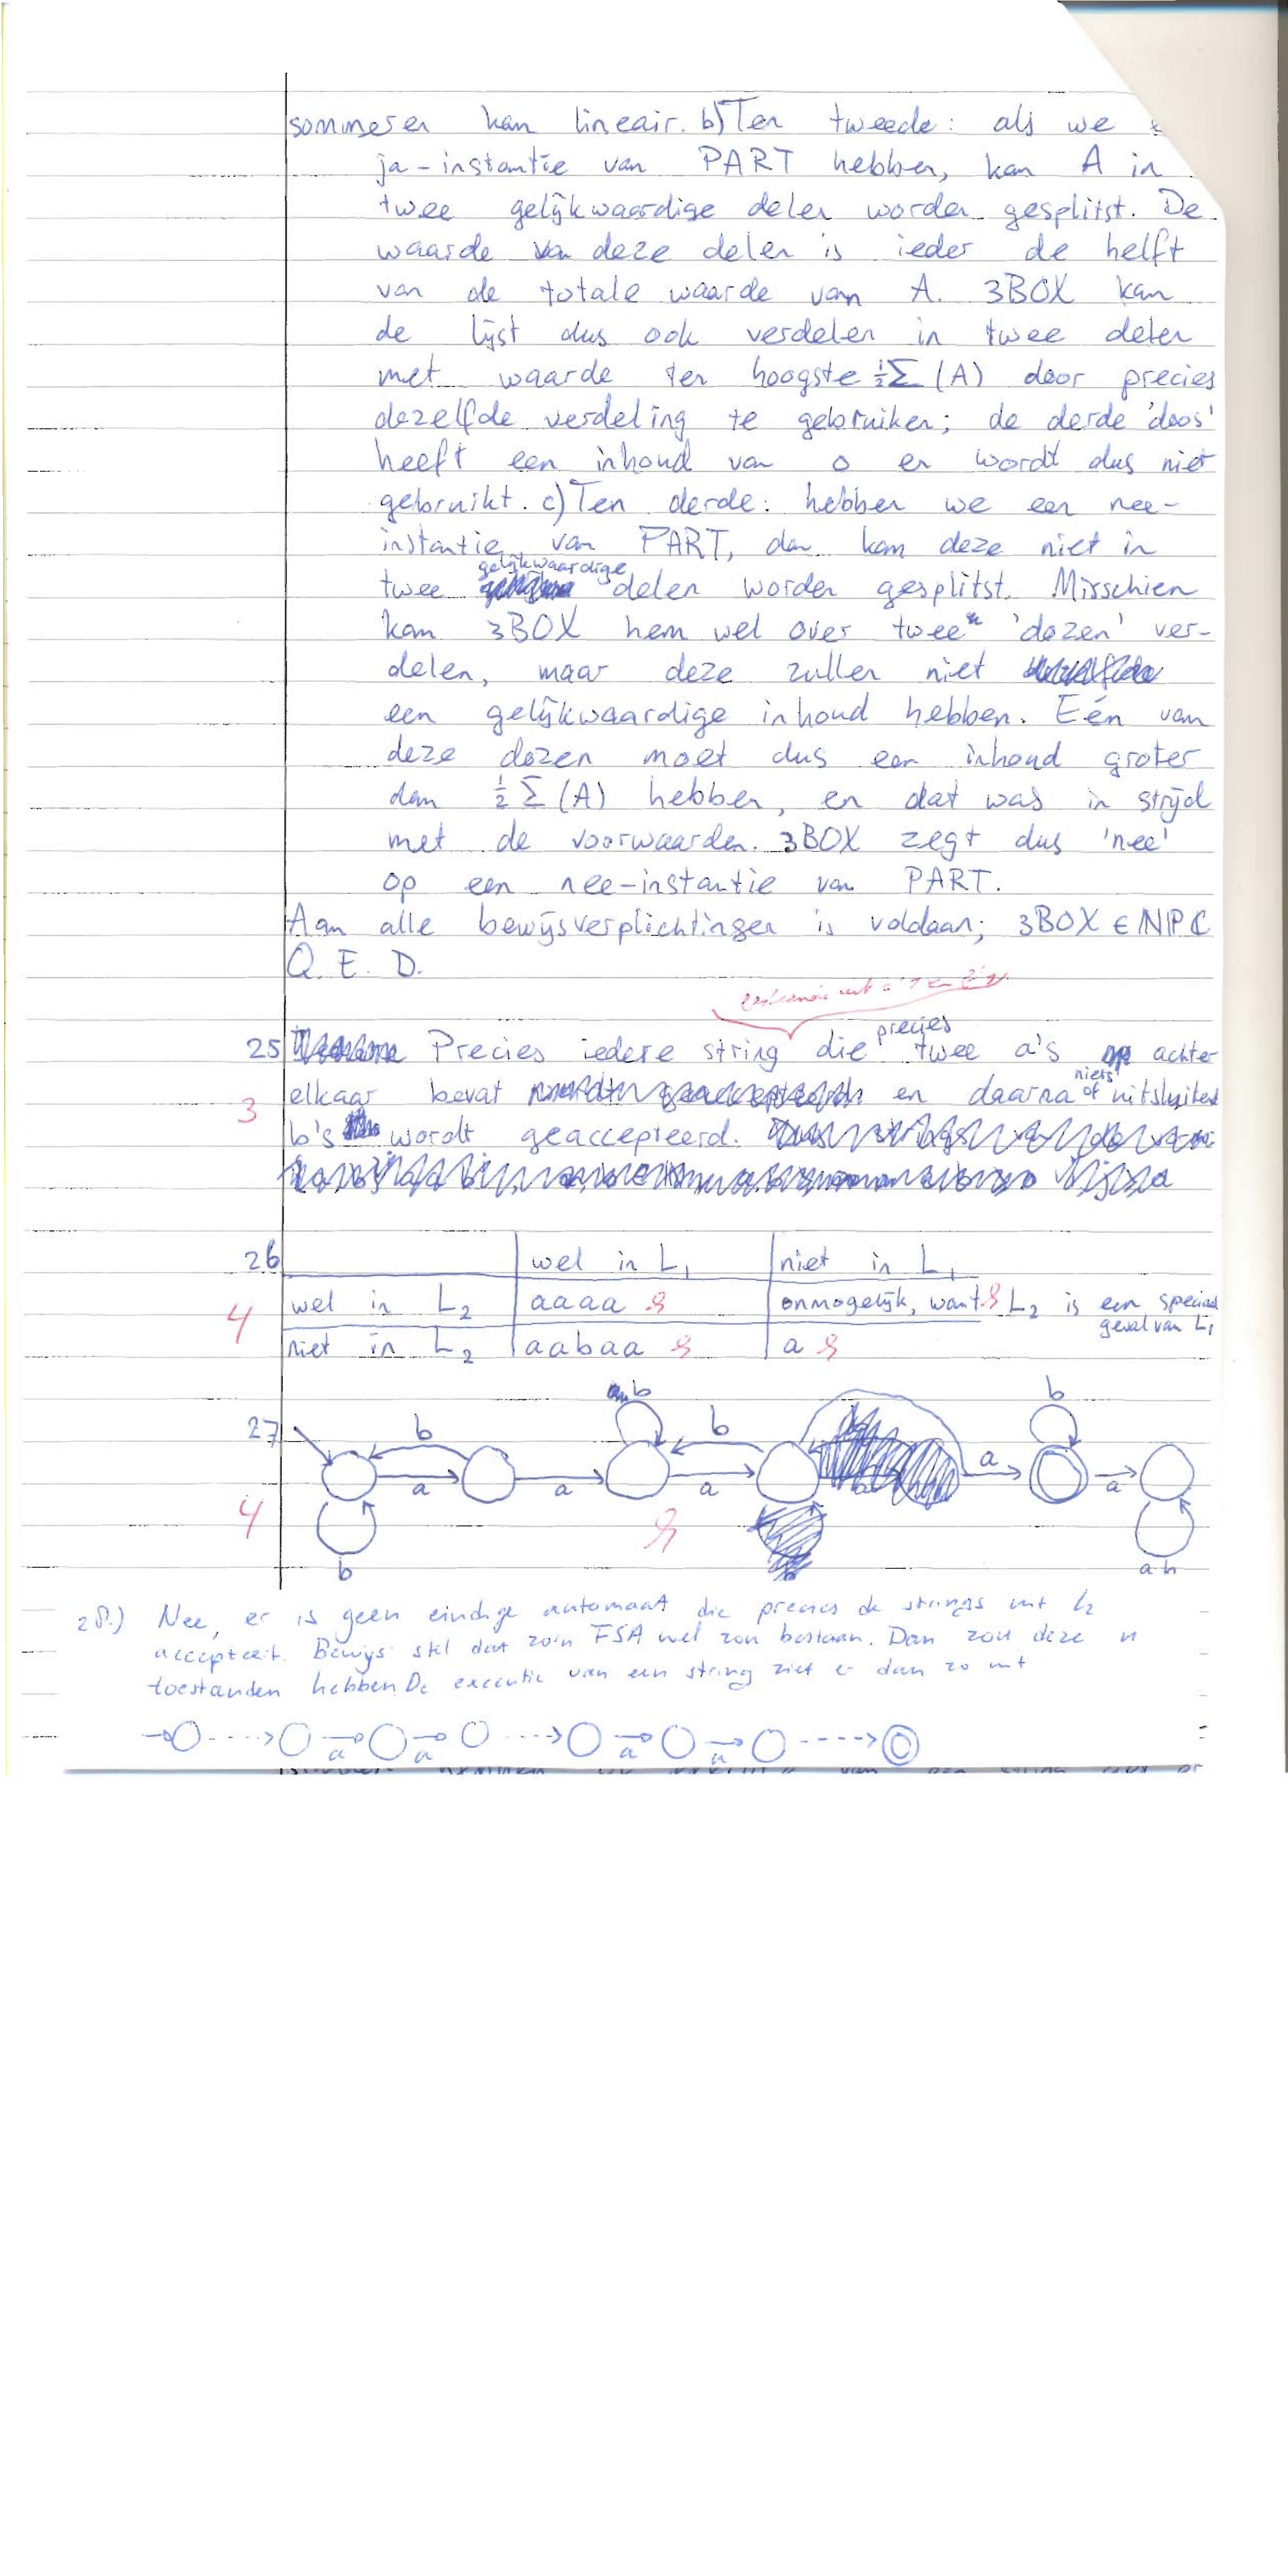 sommeren kan lineair. b) Ten tweede: als we
ja-instantie van PART hebben, kan A in
twee gelijkwaardige delen worden gesplitst. De
waarde van deze delen is ieder de helft
van de totale waarde van A. 3BOX kan
de lijst dus ook verdelen in twee delen
met waarde ten hoogste ½Σ(A) door precies
dezelfde verdeling te gebruiken; de derde 'doos'
heeft een inhoud van 0 en wordt dus niet
gebruikt. c) Ten derde: hebben we een nee-
instantie van PART, dan kan deze niet in
gelijkwaardige
twee delen worden gesplitst. Misschien
kan 3BOX hem wel over twee 'dozen' ver-
delen, maar deze zullen niet
een gelijkwaardige inhoud hebben. Eén van
deze dozen moet dus een inhoud groter
dan ½Σ(A) hebben, en dat was in strijd
met de voorwaarden. 3BOX zegt dus 'nee'
op een nee-instantie van PART.
Aan alle bewijsverplichtingen is voldaan; 3BOX ∈ NPC
Q.E.D.
precies
25 Precies iedere string die twee a's achter
niets
3 elkaar bevat en daarna of uitsluitend
b's wordt geaccepteerd.
26 wel in L₁ niet in L₁
4 wel in L₂ aaaa onmogelijk, want L₂ is een speciaal
geval van L₁
niet in L₂ aabaa a
b b
27 b b a
a a a a
4
b a b
28.) Nee, er is geen eindige automaat die precies de strings uit L₂
accepteert. Bewijs: stel dat zo'n FSA wel zou bestaan. Dan zou deze n
toestanden hebben. De executie van een string ziet er dan zo uit
a a a a